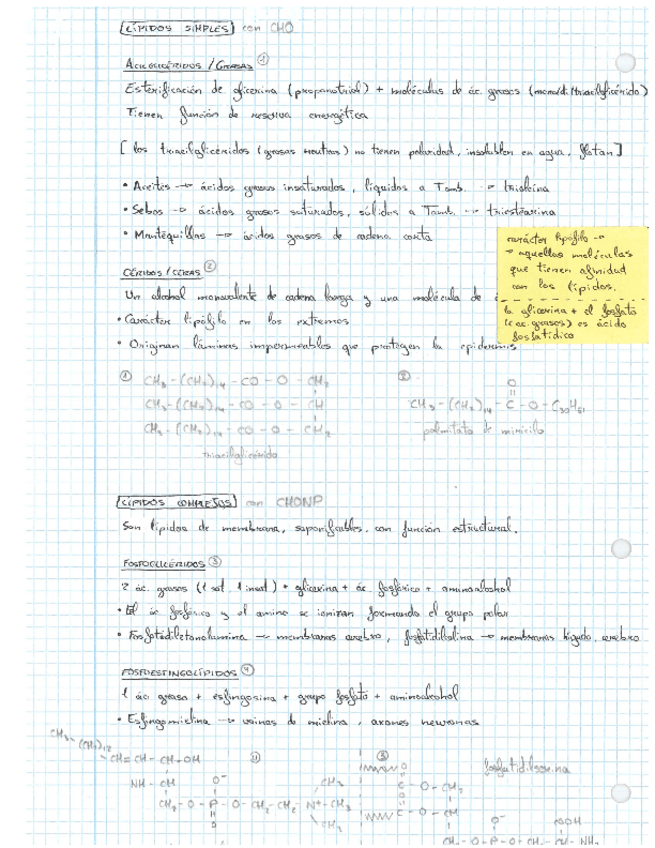 LÍPIDOS SIMPLES con CHO
ACILGLICÉRIDOS / GRASAS ①
Esterificación de glicerina (propanotriol) + moléculas de ác. grasos (mono/di/triacilglicérido)
Tienen función de reserva energética
[ los triacilglicéridos (grasas neutras) no tienen polaridad, insolubles en agua, flotan ]
• Aceites → ácidos grasos insaturados, líquidos a Tamb. → trioleína
• Sebos → ácidos grasos saturados, sólidos a Tamb. → triestearina
• Mantequillas → ácidos grasos de cadena corta
carácter lipófilo →
→ aquellas moléculas
que tienen afinidad
con los lípidos.
la glicerina + el fosfato
(+ ac. grasos) es ácido
fosfatídico
CÉRIDOS / CERAS ②
Un alcohol monovalente de cadena larga y una molécula de
• Carácter lipófilo en los extremos
• Originan láminas impermeables que protegen la epidermis
① CH3-(CH2)14-CO-O-CH2
CH3-(CH2)14-CO-O-CH
CH3-(CH2)14-CO-O-CH2
triacilglicérido
② O
CH3-(CH2)14-C-O-C30H61
palmitato de miricilo
LÍPIDOS COMPLEJOS con CHONP
Son lípidos de membrana, saponificables, con función estructural.
FOSFOGLICÉRIDOS ③
2 ác. grasos (1 sat. 1 insat) + glicerina + ác. fosfórico + aminoalcohol
• El ác fosfórico y el amino se ionizan formando el grupo polar
• Fosfatidiletanolamina → membranas cerebro, fosfatidilcolina → membranas hígado, cerebro
FOSFOESFINGOLÍPIDOS ④
1 ác graso + esfingosina + grupo fosfato + aminoalcohol
• Esfingomielina → vainas de mielina, axones neuronas
CH3-(CH2)12
CH=CH-CH-OH
NH-CH O- CH3
CH2-O-P-O-CH2-CH2-N+-CH3
O CH3
③ fosfatidilserina
O
C-O-CH2
C-O-CH
O- COOH
CH2-O-P-O-CH2-CH-NH2